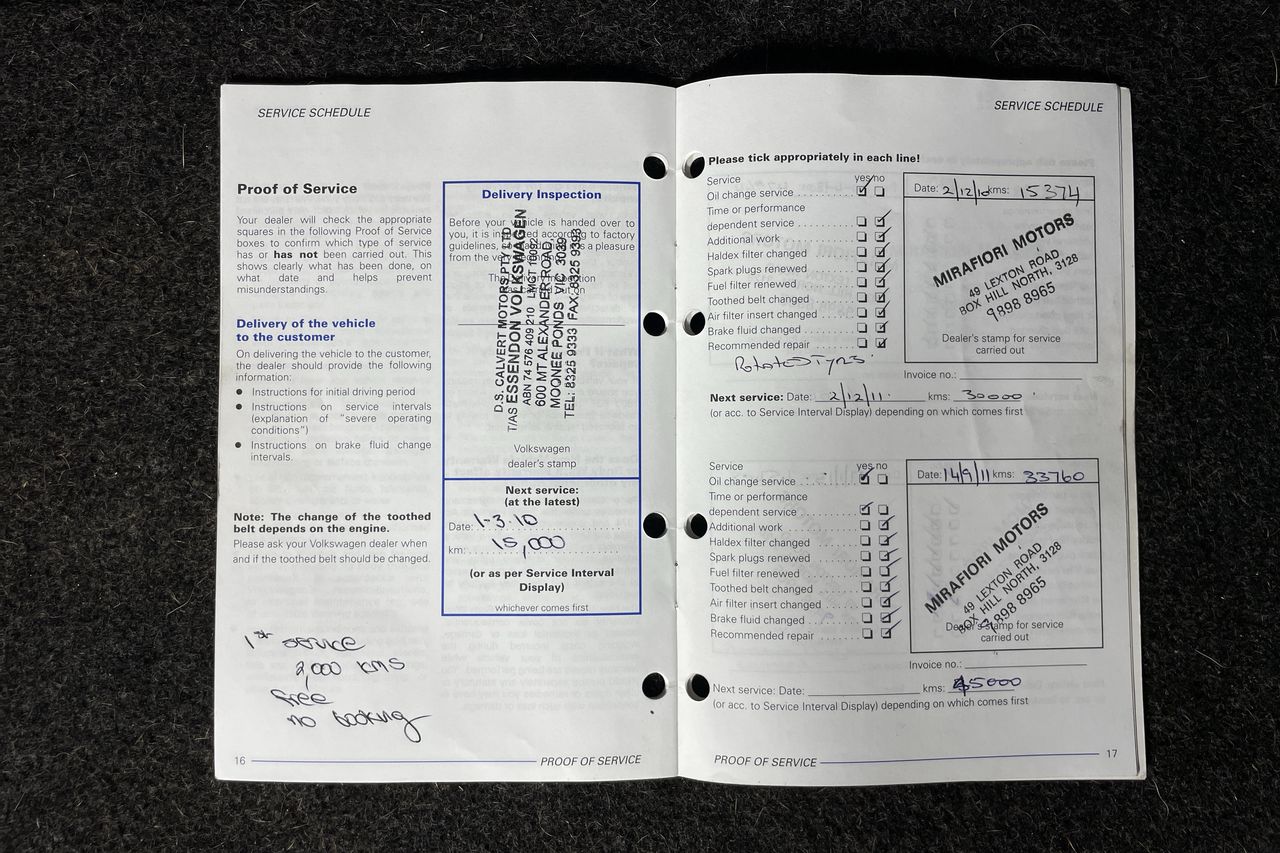 SERVICE SCHEDULE
Proof of Service
Your dealer will check the appropriate
squares in the following Proof of Service
boxes to confirm which type of service
has or has not been carried out. This
shows clearly what has been done, on
what date and helps prevent
misunderstandings.
Delivery of the vehicle
to the customer
On delivering the vehicle to the customer,
the dealer should provide the following
information:
● Instructions for initial driving period
● Instructions on service intervals
(explanation of "severe operating
conditions")
● Instructions on brake fluid change
intervals.
Note: The change of the toothed
belt depends on the engine.
Please ask your Volkswagen dealer when
and if the toothed belt should be changed.
1st service
2,000 kms
free
no booking
16
PROOF OF SERVICE
Delivery Inspection
Before your vehicle is handed over to
you, it is inspected according to factory
guidelines, a pleasure
from the
D.S. CALVERT MOTORS PTY LTD
T/AS ESSENDON VOLKSWAGEN
ABN 74 576 409 210 LMCT
600 MT ALEXANDER ROAD
MOONEE PONDS VIC 3039
TEL: 8325 9333 FAX: 8325 9393
Volkswagen
dealer's stamp
Next service:
(at the latest)
Date: 1-3-10
km: 15,000
(or as per Service Interval
Display)
whichever comes first
SERVICE SCHEDULE
Please tick appropriately in each line!
Service yes no
Oil change service
Time or performance
dependent service
Additional work
Haldex filter changed
Spark plugs renewed
Fuel filter renewed
Toothed belt changed
Air filter insert changed
Brake fluid changed
Recommended repair
Rotated Tyres
Date: 2/12/10 kms: 15374
MIRAFIORI MOTORS
49 LEXTON ROAD
BOX HILL NORTH, 3128
9898 8965
Dealer's stamp for service
carried out
Invoice no.:
Next service: Date: 2/12/11 kms: 30000
(or acc. to Service Interval Display) depending on which comes first
Service yes no
Oil change service
Time or performance
dependent service
Additional work
Haldex filter changed
Spark plugs renewed
Fuel filter renewed
Toothed belt changed
Air filter insert changed
Brake fluid changed
Recommended repair
Date: 14/9/11 kms: 33760
MIRAFIORI MOTORS
49 LEXTON ROAD
BOX HILL NORTH, 3128
9898 8965
Dealer's stamp for service
carried out
Invoice no.:
Next service: Date: kms: 45000
(or acc. to Service Interval Display) depending on which comes first
PROOF OF SERVICE
17